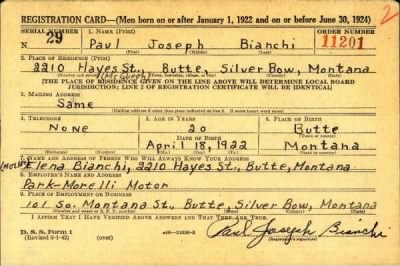 REGISTRATION CARD—(Men born on or after January 1, 1922 and on or before June 30, 1924)
SERIAL NUMBER 1. NAME (Print) ORDER NUMBER
29 Paul Joseph Bianchi 11201
2
2. PLACE OF RESIDENCE (Print)
2210 Hayes St., Butte, Silver Bow, Montana
[THE PLACE OF RESIDENCE GIVEN ON THE LINE ABOVE WILL DETERMINE LOCAL BOARD
JURISDICTION; LINE 2 OF REGISTRATION CERTIFICATE WILL BE IDENTICAL]
3. MAILING ADDRESS
Same
4. TELEPHONE 5. AGE IN YEARS 6. PLACE OF BIRTH
None 20 Butte
DATE OF BIRTH
April 18, 1922 Montana
7. NAME AND ADDRESS OF PERSON WHO WILL ALWAYS KNOW YOUR ADDRESS
(Mother) Elena Bianchi, 2210 Hayes St., Butte, Montana
8. EMPLOYER'S NAME AND ADDRESS
Park-Morelli Motor
9. PLACE OF EMPLOYMENT OR BUSINESS
101 So. Montana St., Butte, Silver Bow, Montana
I AFFIRM THAT I HAVE VERIFIED ABOVE ANSWERS AND THAT THEY ARE TRUE.
D. S. S. Form 1
Paul Joseph Bianchi
(Registrant's signature)